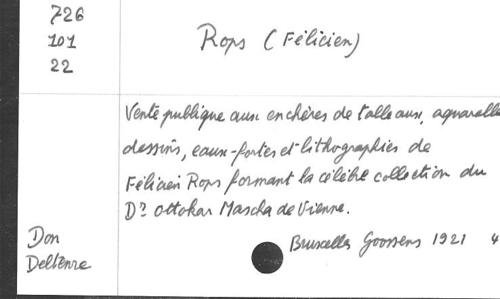 726
101
22
Rops (Félicien)
Vente publique aux enchères de tableaux, aquarelles
dessins, eaux-fortes et lithographies de
Félicien Rops formant la célèbre collection du
Dr. Ottokar Mascha de Vienne.
Bruxelles Goossens 1921 4
Don
Deltenre